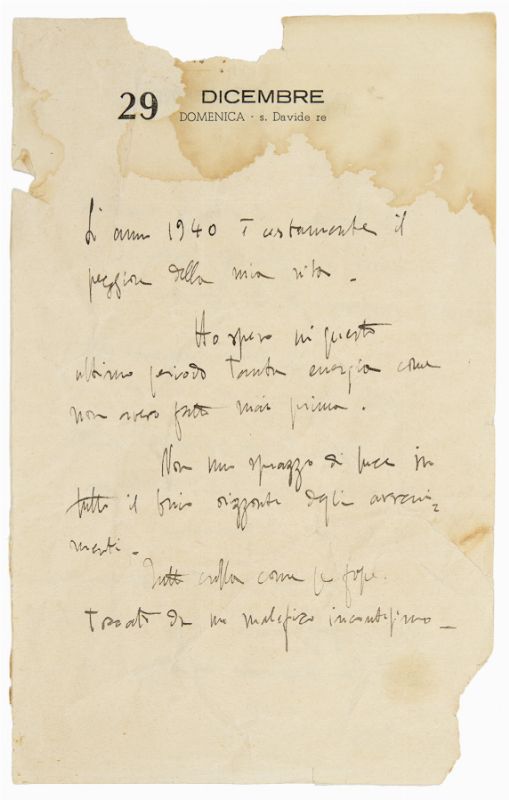 29 DICEMBRE
DOMENICA · s. Davide re
L'anno 1940 è certamente il
peggiore della mia vita.
Ho speso in questo
ultimo periodo tanta energia come
non avevo fatto mai prima.
Non uno sprazzo di luce in
tutto il buio orizzonte degli avveni=
menti.
Tutto crolla come se fosse
toccato da un malefico incantesimo